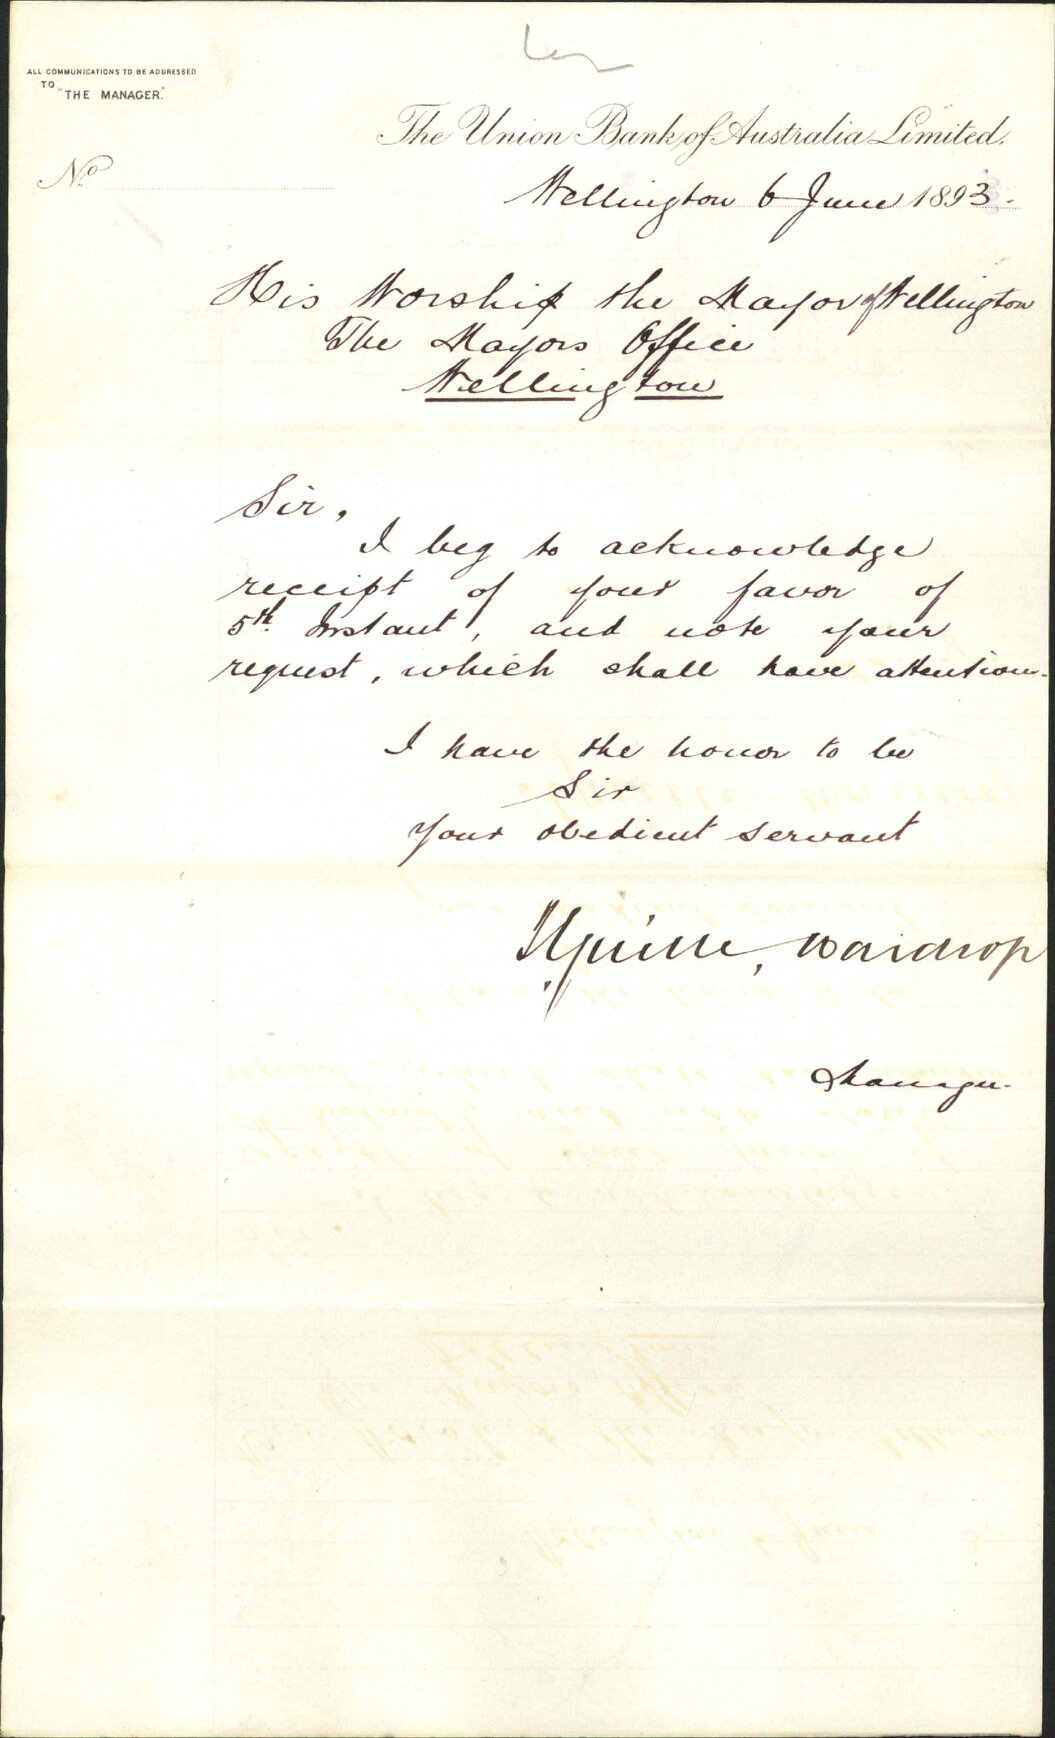 ALL COMMUNICATIONS TO BE ADDRESSED
TO
"THE MANAGER."
The Union Bank of Australia Limited.
No
Wellington 6 June 1893.
His Worship the Mayor of Wellington
The Mayors Office
Wellington
Sir,
I beg to acknowledge
receipt of your favor of
5th Instant, and note your
request, which shall have attention.
I have the honor to be
Sir
Your obedient servant
Wardrop
Manager.